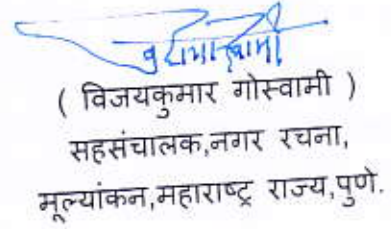 ( विजयकुमार गोस्वामी )
सहसंचालक,नगर रचना,
मूल्यांकन,महाराष्ट्र राज्य,पुणे.